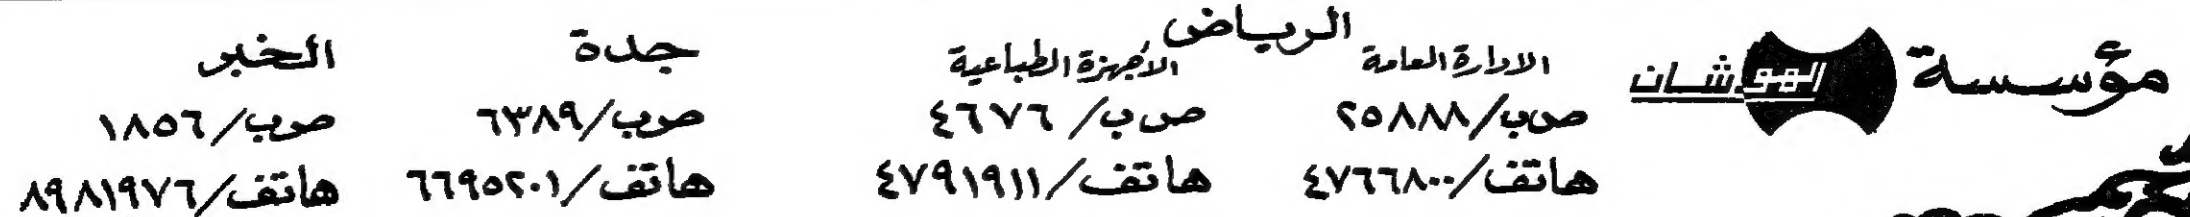 مؤسسة الهوشان
الرياض
الادارة العامة
ص ب/٢٥٨٨٨
هاتف/٤٧٦٦٨٠٠
الأجهزة الطباعية
ص ب/٤٦٧٦
هاتف/٤٧٩١٩١١
جدة
ص ب/٦٣٨٩
هاتف/٦٦٩٥٢٠١
الخبر
ص ب/١٨٥٦
هاتف/٨٩٨١٩٧٦